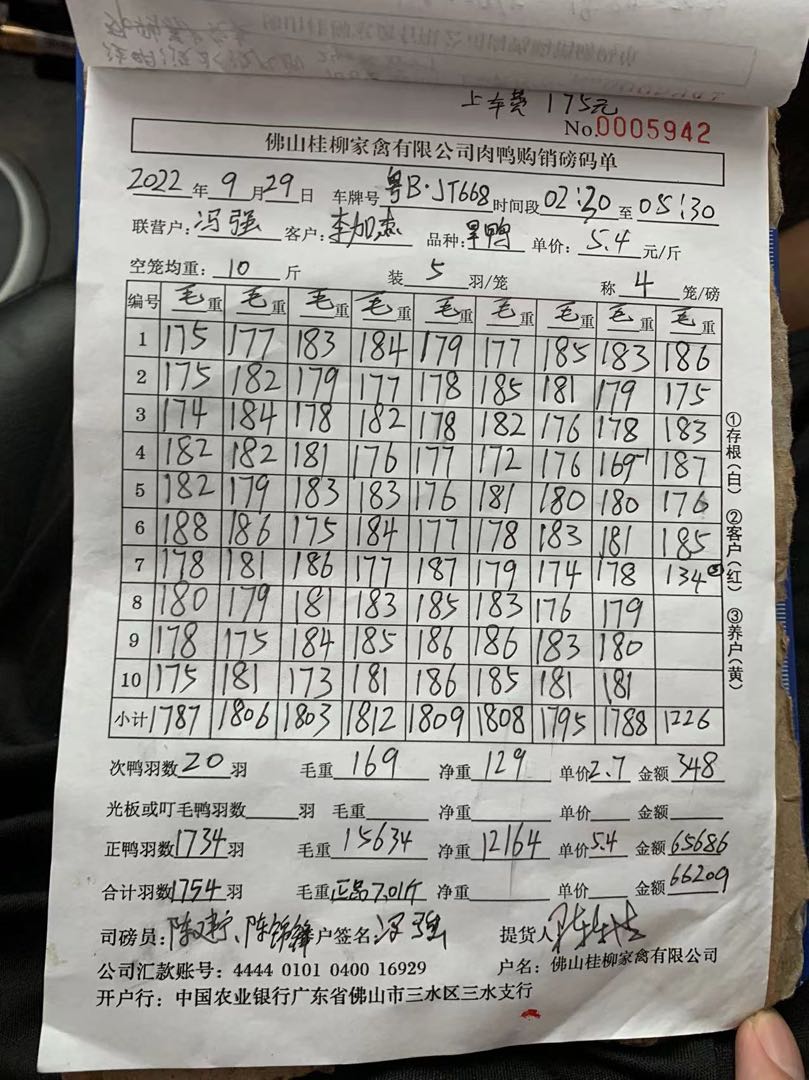 上车费 175元
No.0005942
佛山桂柳家禽有限公司肉鸭购销磅码单
2022年9月29日 车牌号粤B·JT668时间段02:30至05:30
联营户：冯强 客户：李加杰 品种：旱鸭 单价：5.4元/斤
空笼均重：10斤 装5羽/笼 称4笼/磅
编号 毛重 毛重 毛重 毛重 毛重 毛重 毛重 毛重 毛重
1 175 177 183 184 179 177 185 183 186
2 175 182 179 177 178 185 181 179 175
3 174 184 178 182 178 182 176 178 183
4 182 182 181 176 177 172 176 169 187
5 182 179 183 183 176 181 180 180 176
6 188 186 175 184 177 178 183 181 185
7 178 181 186 177 187 179 174 178 134③
8 180 179 181 183 185 183 176 179
9 178 175 184 185 186 186 183 180
10 175 181 173 181 186 185 181 181
小计 1787 1806 1803 1812 1809 1808 1795 1788 1226
次鸭羽数20羽 毛重169 净重129 单价2.7 金额348
光板或叮毛鸭羽数 羽 毛重 净重 单价 金额
正鸭羽数1734羽 毛重15634 净重12164 单价5.4 金额65686
合计羽数1754羽 毛重正品7.01斤 净重 单价 金额66209
司磅员： 户签名：冯强 提货人
公司汇款账号：4444 0101 0400 16929 户名：佛山桂柳家禽有限公司
开户行：中国农业银行广东省佛山市三水区三水支行
①存根(白) ②客户(红) ③养户(黄)